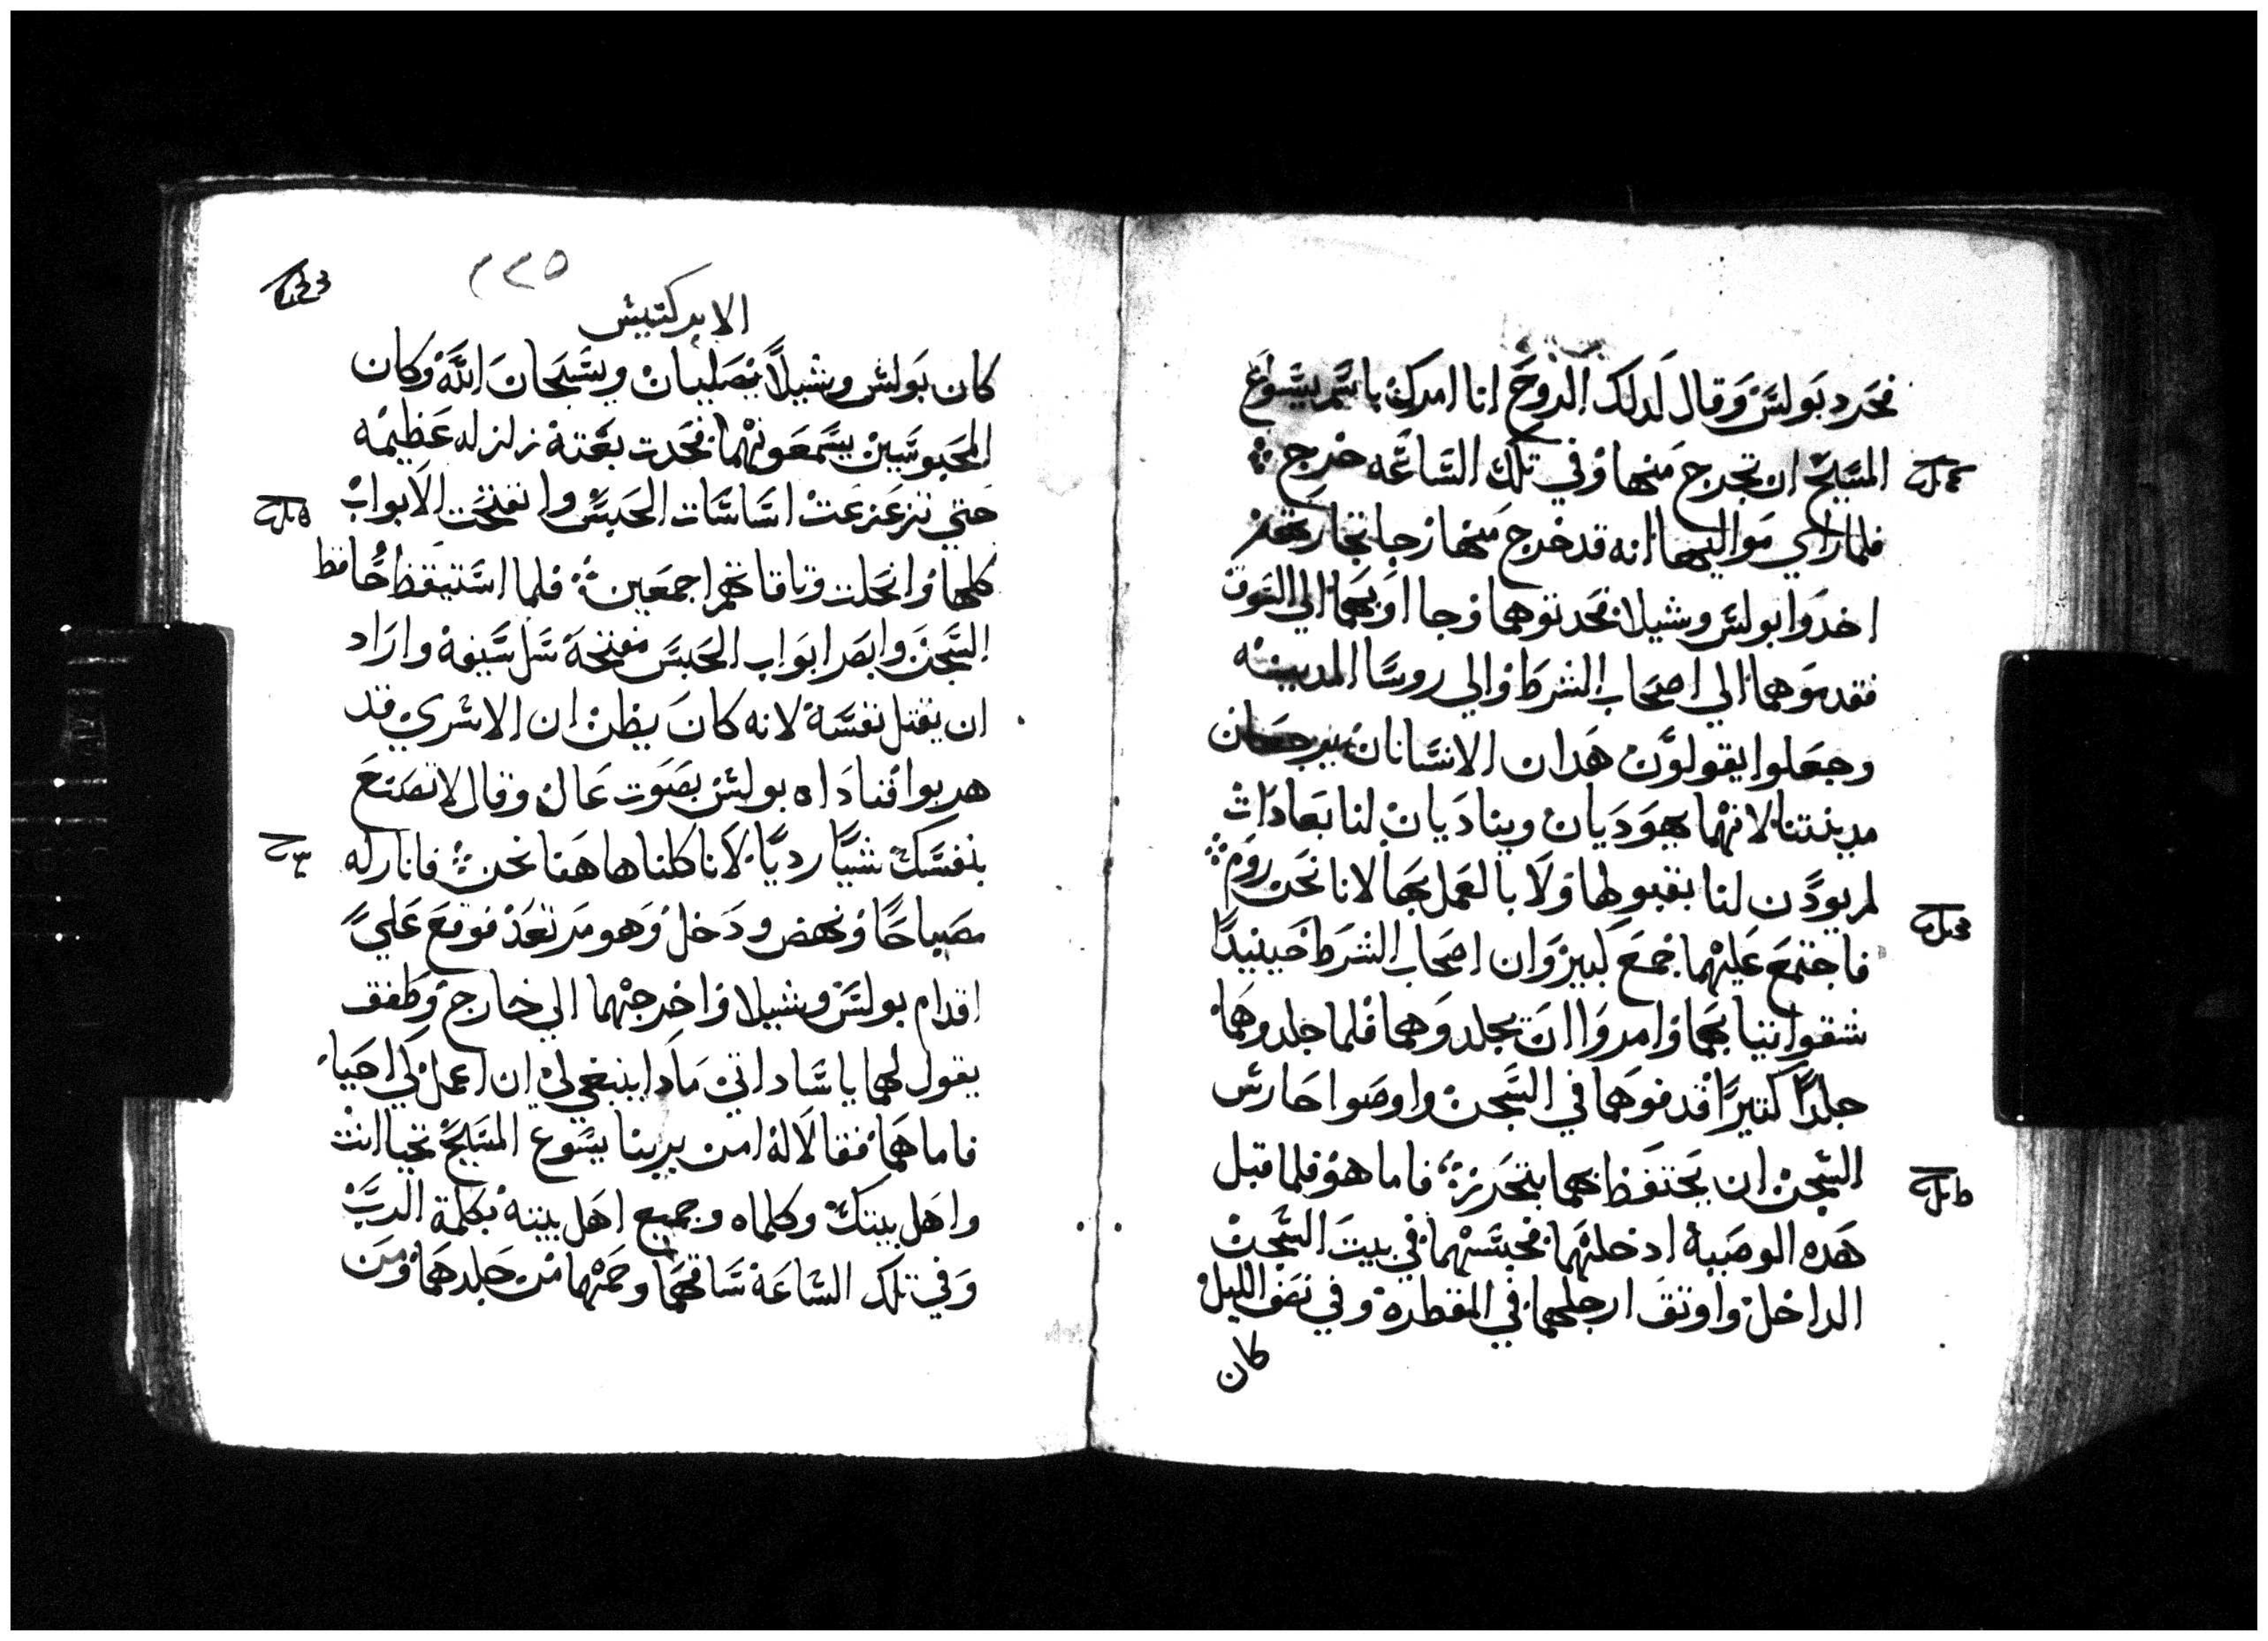 فحرد بولس وقال لدلك الروح انا امرك باسم يسوع
المسيح ان تخرج منها وفي تلك الساعه خرج
فلما راي مواليها انه قد خرج منها رجا تجارتهم
اخدوا بولس وشيلا فحدتوهما وجا اوبهما الي السوق
فقدموهما الي اصحاب الشرط والي روسا المدينه
وجعلوا يقولون هدان الانسانان يرجفان
مدينتنا لانهما يهوديان ويناديان لنا بعادات
لم يودن لنا بقبولها ولا بالعمل بها لانا نحن روم
فاجتمع عليهما جمع كبير وان اصحاب الشرط حينيدا
شقوا تيابهما وامروا ان يجلدوهما فلما جلدوهما
جلدا كتيرا قدفوهما في السجن واوصوا حارس
السجن ان يحتفظ بهما بتحرز فاما هو فلما قبل
هده الوصية ادخلهما فحبسهما في بيت السجن
الداخل واوتق ارجلهما في المقطرة وفي نصف الليل
كان
٢٢٥
الابركسيس
كان بولس وشيلا يصليان ويسبحان الله وكان
المحبوسين يسمعونهما فحدت بغتة زلزله عظيمه
حتي تزعزعت اساسات الحبس وانفتحت الابواب
كلها وانحلت وتاقاتهم اجمعين فلما استيقظ حافظ
السجن وابصر ابواب الحبس مفتحة سل سيفه واراد
ان يقتل نفسه لانه كان يظن ان الاسري قد
هربوا فناداه بولس بصوت عال وقال لا تصنع
بنفسك شيا رديا لانا كلنا هاهنا نحن فانار له
مصباحا ونهض ودخل وهو مرتعد فوقع علي
اقدام بولس وشيلا واخرجهما الي خارج وطفق
يقول لهما ياساداتي مادا ينبغي لي ان اعمل لكي احيا
فاما هما فقالا له امن بربنا يسوع المسيح تحيا انت
واهل بيتك وكلماه وجميع اهل بيته بكلمة الرب
وفي تلك الساعة ساقهما وحمهما من جلدهما ومن